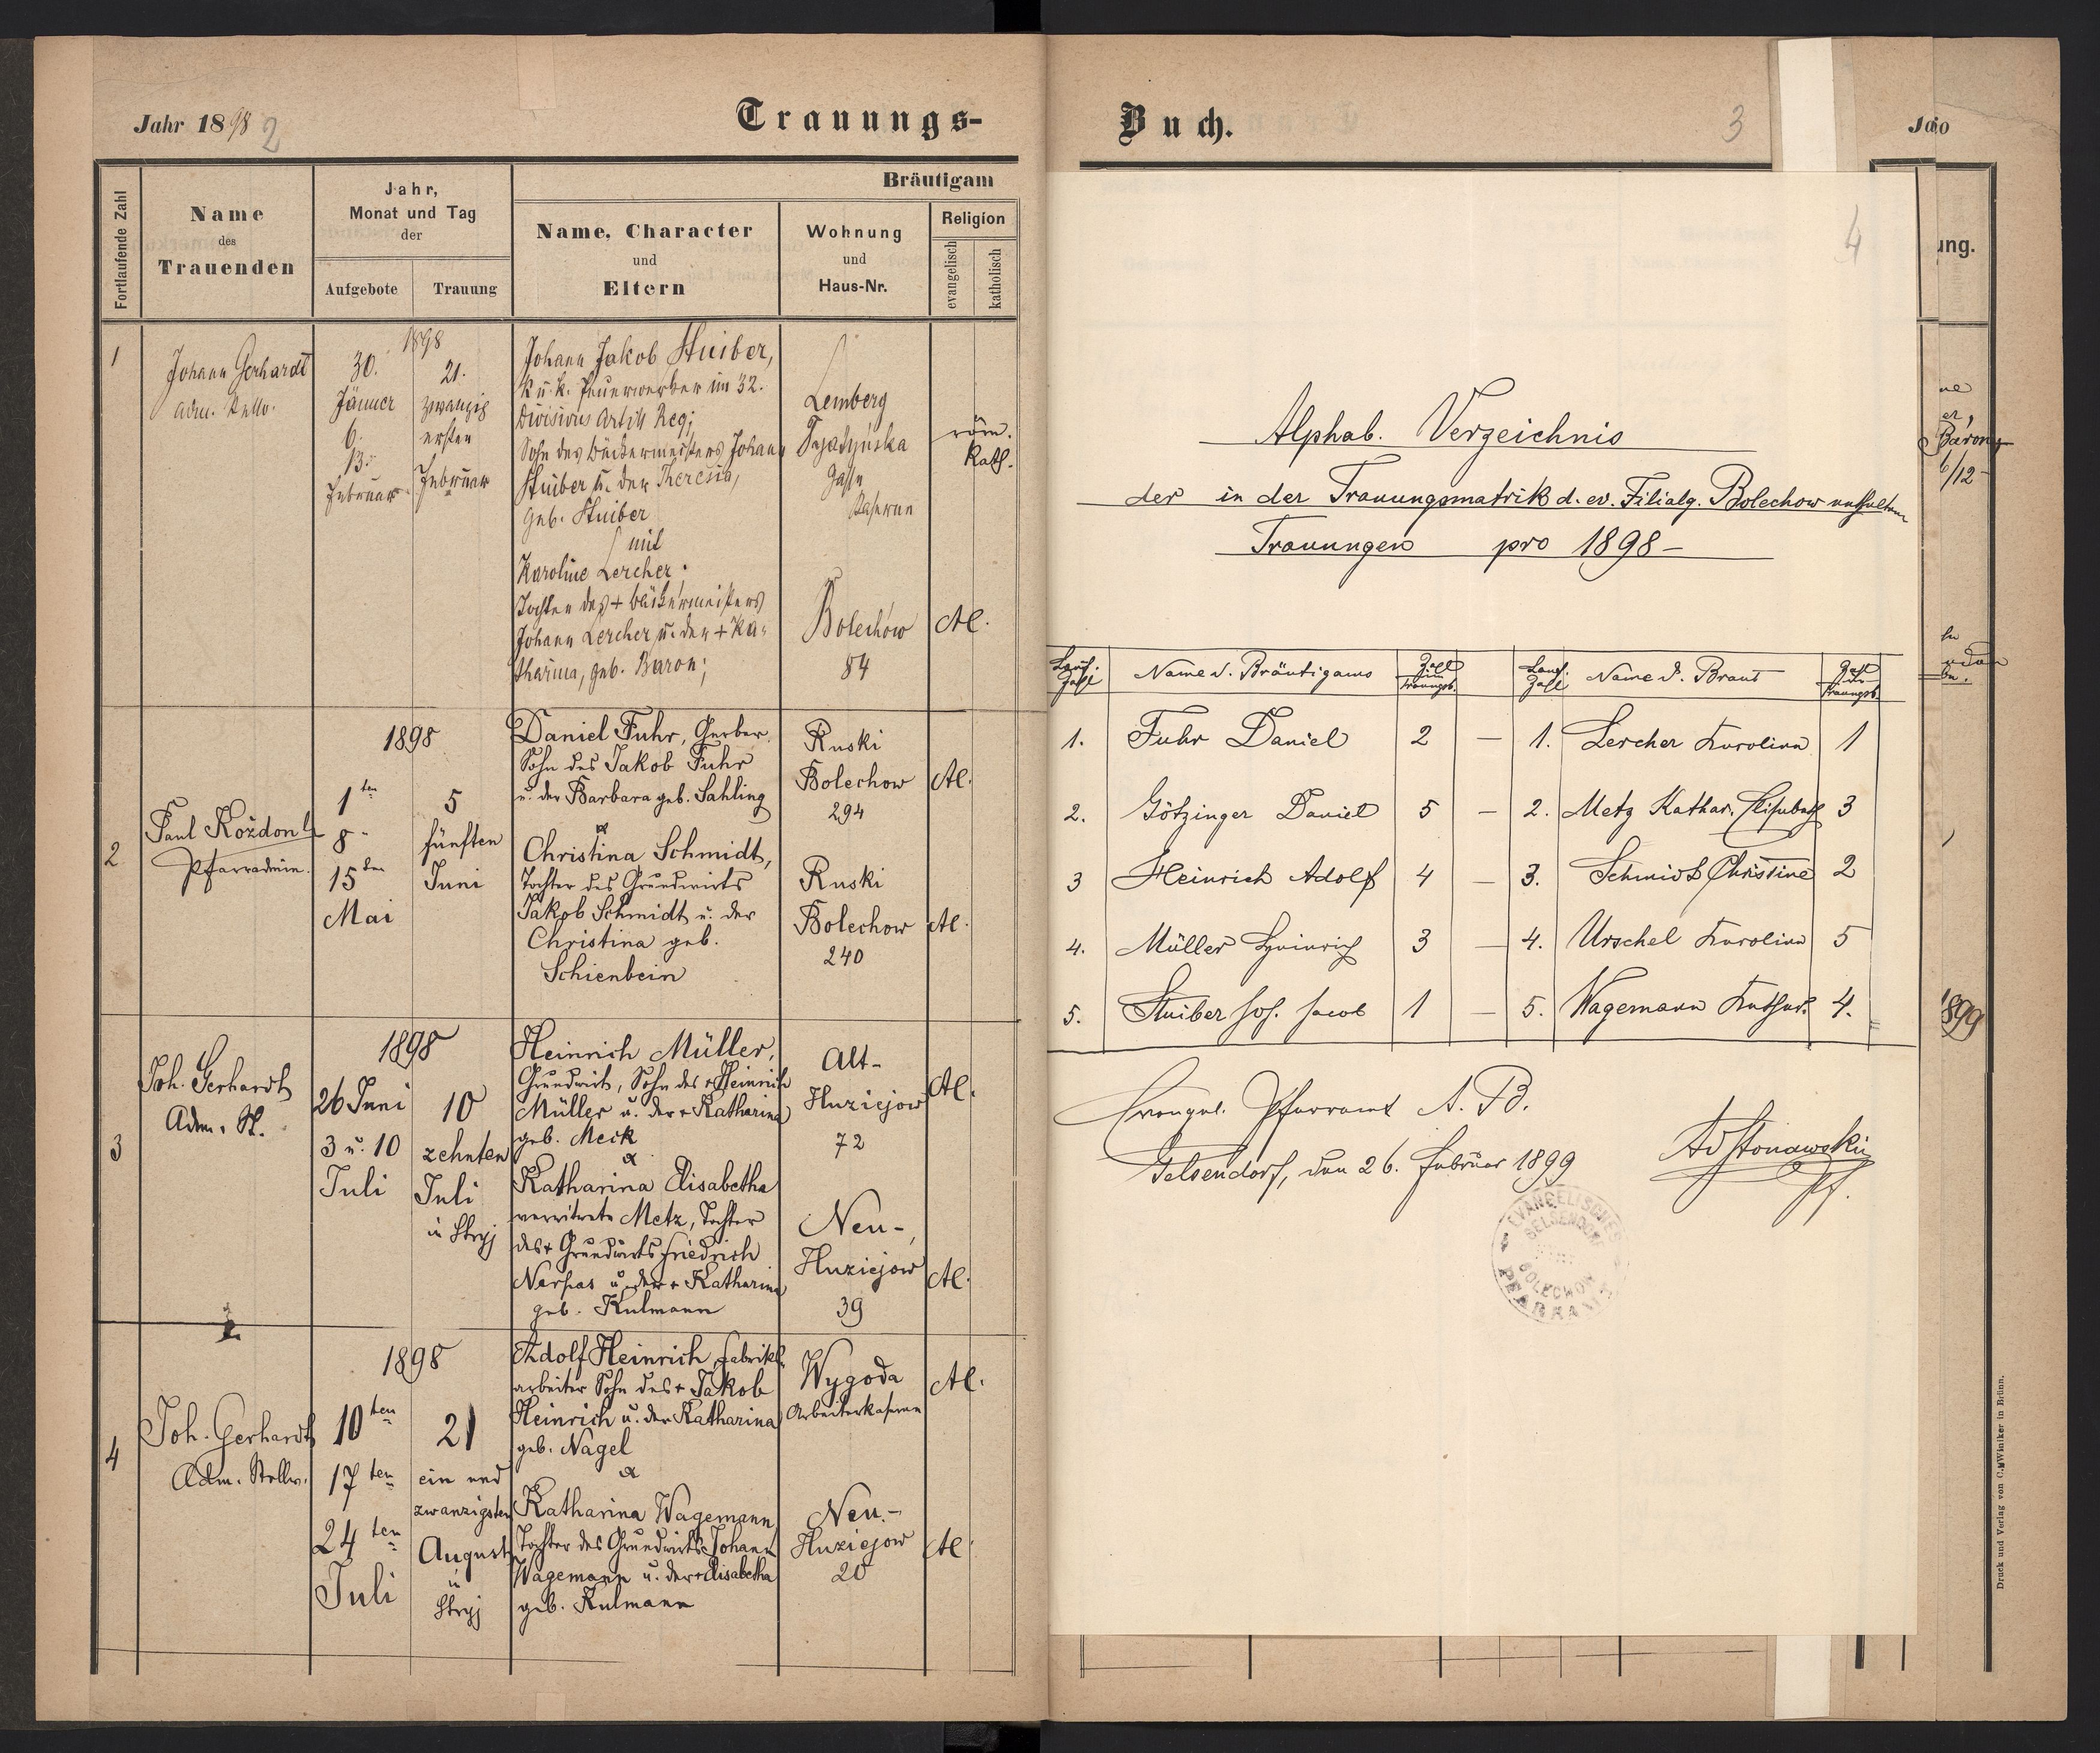 Jahr 1898 2
Trauungs-
Fortlaufende Zahl
Name
des
Trauenden
Jahr,
Monat und Tag
der
Aufgebote
Trauung
Bräutigam
Name, Character
und
Eltern
Wohnung
und
Haus-Nr.
Religion
evangelisch
katholisch
1
Johann Gerhardt
Adm.
1898
30.
Jänner
6.
13.
Februar
21.
zwanzig
ersten
Februar
Johann Jakob Stuiber,
k. u. k. Feuerwerker im 32.
Divisions Artill Reg;
Sohn des Bäckermeisters Johann
Stuiber u. der Theresia,
geb. Stuiber
mit
Karoline Lercher;
Tochter des + Bäckermeisters
Johann Lercher u. der + Ka-
tharina, geb. Baron;
Lemberg
Gasse
Kaserne
röm.
Kath.
Bolechów
84
AC.
2
Paul Kożdoń
Pfarradmin.
1898
1ten
8
15ten
Mai
5
fünften
Juni
Daniel Fuhr, Gerber
Sohn des Jakob Fuhr
u. der Barbara geb. Sahling
&
Christina Schmidt,
Tochter des Grundwirts
Jakob Schmidt u. der
Christina geb.
Schienbein
Ruski
Bolechow
294
AC.
Ruski
Bolechow
240
AC.
3
Joh. Gerhardt
Adm. St.
1898
26 Juni
3 u. 10
Juli
10
zehnten
Juli
in Stryj
Heinrich Müller,
Grundwirt, Sohn des + Heinrich
Müller u. der + Katharina
geb. Meck
&
Katharina Elisabetha
verwitwete Metz, Tochter
des + Grundwirts Friedrich
u. der + Katharina
geb. Kulmann
Alt-
Huziejow
72
AC.
Neu-
Huziejow
39
AC.
4
Joh. Gerhardt
Adm. Stellv.
1898
10ten
17ten
24ten
Juli
21
ein und
zwanzigsten
August
in
Stryj
Adolf Heinrich, Fabriks-
arbeiter Sohn des + Jakob
Heinrich u. der Katharina
geb. Nagel
&
Katharina Wagemann
Tochter des Grundwirts Johann
Wagemann u. der + Elisabetha
geb. Kulmann
Wygoda
Arbeiterkaserne
AC.
Neu-
Huziejow
20
AC
Buch.
3
4
Alphab. Verzeichnis
der in der Trauungsmatrik d. ev. Filialg. Bolechow enthaltenen
Trauungen pro 1898 –
Lauf. Zahl
Name d. Bräutigams
Zahl im Trauungsb.
Lauf. Zahl
Name d. Braut
Zahl im Trauungsb.
1. Fuhr Daniel 2 – 1. Lercher Karolina 1
2. Götzinger Daniel 5 – 2. Metz Kathar. Elisabeth 3
3 Heinrich Adolf 4 – 3. Schmidt Christine 2
4. Müller Heinrich 3 – 4. Urschel Karolina 5
5. Stuiber Joh. Jacob 1 – 5. Wagemann Kathar. 4.
Evangel. Pfarramt A. B.
Gelsendorf, den 26. Februar 1899
Ad Stonawski
Pf.
EVANGELISCHES
GELSENDORF
BOLECHOW
ung.
Baron
6/12
1899
Druck und Verlag von C. Winiker in Brünn.